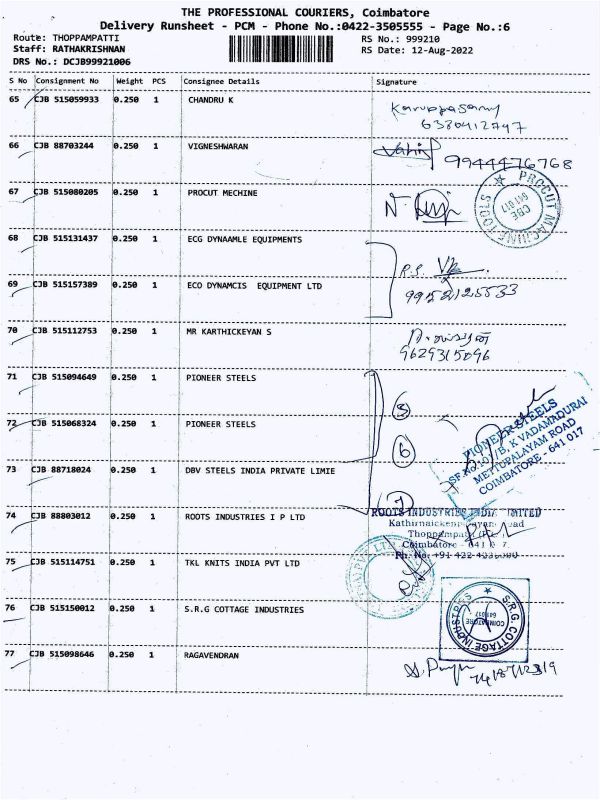 THE PROFESSIONAL COURIERS, Coimbatore
Delivery Runsheet - PCM - Phone No.:0422-3505555 - Page No.:6
Route: THOPPAMPATTI RS No.: 999210
Staff: RATHAKRISHNAN RS Date: 12-Aug-2022
DRS No.: DCJB99921006
S No Consignment No Weight PCS Consignee Details Signature
65 CJB 515059933 0.250 1 CHANDRU K
Karuppasamy
6380412747
66 CJB 88703244 0.250 1 VIGNESHWARAN
9944476768
67 CJB 515080205 0.250 1 PROCUT MECHINE
PROCUT MACHINE TOOLS
CBE
641 017
68 CJB 515131437 0.250 1 ECG DYNAAMLE EQUIPMENTS
69 CJB 515157389 0.250 1 ECO DYNAMCIS EQUIPMENT LTD
70 CJB 515112753 0.250 1 MR KARTHICKEYAN S
9629315096
71 CJB 515094649 0.250 1 PIONEER STEELS
72 CJB 515068324 0.250 1 PIONEER STEELS
6
PIONEER STEELS
K VADAMADURAI
METTUPALAYAM ROAD
COIMBATORE - 641 017
73 CJB 88718024 0.250 1 DBV STEELS INDIA PRIVATE LIMIE
7
74 CJB 88803012 0.250 1 ROOTS INDUSTRIES I P LTD
ROOTS INDUSTRIES INDIA LIMITED
75 CJB 515114751 0.250 1 TKL KNITS INDIA PVT LTD
Coimbatore
Ph. No: +91 422
76 CJB 515150012 0.250 1 S.R.G COTTAGE INDUSTRIES
S.R.G. COTTAGE INDUSTRIES
COIMBATORE
641 017
77 CJB 515098646 0.250 1 RAGAVENDRAN